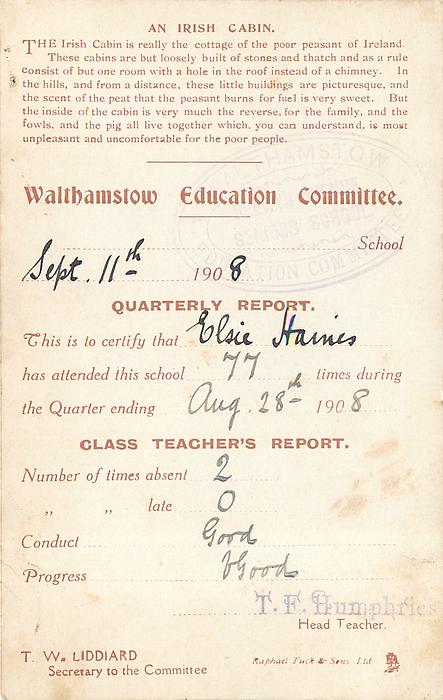 AN IRISH CABIN.
THE Irish Cabin is really the cottage of the poor peasant of Ireland.
These cabins are but loosely built of stones and thatch and as a rule
consist of but one room with a hole in the roof instead of a chimney. In
the hills, and from a distance, these little buildings are picturesque, and
the scent of the peat that the peasant burns for fuel is very sweet. But
the inside of the cabin is very much the reverse, for the family, and the
fowls, and the pig all live together which, you can understand, is most
unpleasant and uncomfortable for the poor people.
WALTHAMSTOW
EDUCATION COMMITTEE
Walthamstow Education Committee.
School
Sept. 11th 1908
QUARTERLY REPORT.
This is to certify that Elsie Haines
has attended this school 77 times during
the Quarter ending Aug. 28th 1908
CLASS TEACHER'S REPORT.
Number of times absent 2
„ „ late 0
Conduct Good
Progress VGood
T. F. Humphries
Head Teacher.
T. W. LIDDIARD
Secretary to the Committee
Raphael Tuck & Sons Ltd